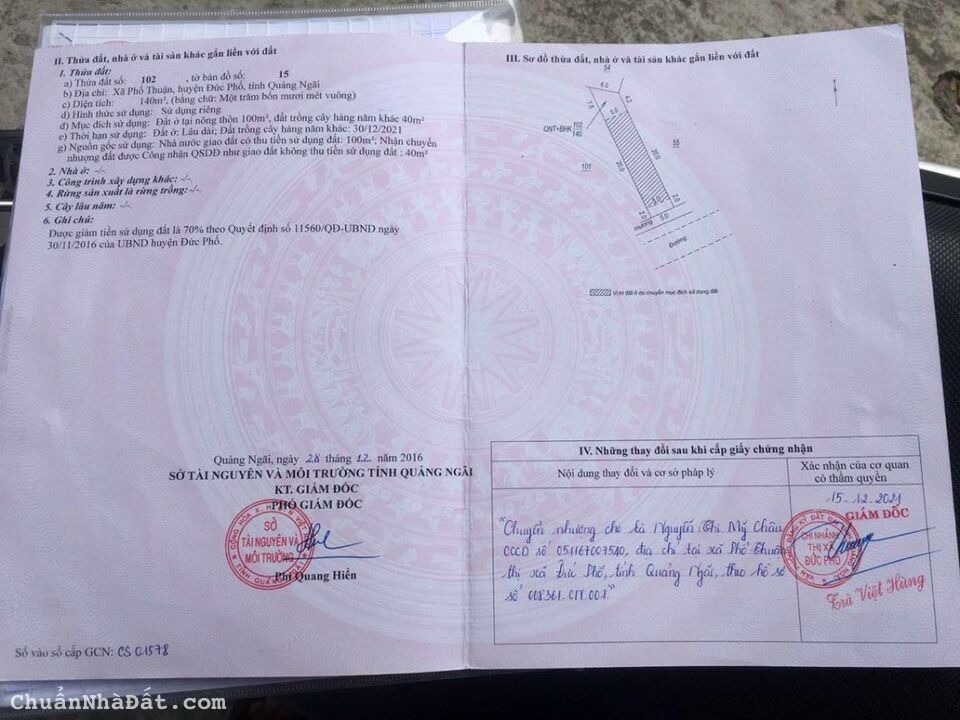 II. Thửa đất, nhà ở và tài sản khác gắn liền với đất
1. Thửa đất:
a) Thửa đất số: 102 , tờ bản đồ số: 15
b) Địa chỉ: Xã Phổ Thuận, huyện Đức Phổ, tỉnh Quảng Ngãi
c) Diện tích: 140m², (bằng chữ: Một trăm bốn mươi mét vuông)
d) Hình thức sử dụng: Sử dụng riêng
đ) Mục đích sử dụng: Đất ở tại nông thôn 100m², đất trồng cây hàng năm khác 40m²
e) Thời hạn sử dụng: Đất ở: Lâu dài; Đất trồng cây hàng năm khác: 30/12/2021
g) Nguồn gốc sử dụng: Nhà nước giao đất có thu tiền sử dụng đất: 100m²; Nhận chuyển
nhượng đất được Công nhận QSDĐ như giao đất không thu tiền sử dụng đất : 40m²
2. Nhà ở: -/-
3. Công trình xây dựng khác: -/-
4. Rừng sản xuất là rừng trồng: -/-
5. Cây lâu năm: -/-
6. Ghi chú:
Được giảm tiền sử dụng đất là 70% theo Quyết định số 11560/QĐ-UBND ngày
30/11/2016 của UBND huyện Đức Phổ.
Quảng Ngãi, ngày 28 tháng 12 năm 2016
SỞ TÀI NGUYÊN VÀ MÔI TRƯỜNG TỈNH QUẢNG NGÃI
KT. GIÁM ĐỐC
PHÓ GIÁM ĐỐC
SỞ
TÀI NGUYÊN VÀ
MÔI TRƯỜNG
Phí Quang Hiển
Số vào sổ cấp GCN: CS 01578
III. Sơ đồ thửa đất, nhà ở và tài sản khác gắn liền với đất
54
6.0
7.8
4.2
5.0
ONT+BHK 102
140
55
101
20.0
20.0
2.0
5.0
2.0
5.0
mương
Đường
Vị trí đất ở do chuyển mục đích sử dụng đất
IV. Những thay đổi sau khi cấp giấy chứng nhận
Nội dung thay đổi và cơ sở pháp lý
Xác nhận của cơ quan
có thẩm quyền
15-12-2021
GIÁM ĐỐC
"Chuyển nhượng cho bà Nguyễn Thị Mỹ Châu
CCCD số 051167007540, địa chỉ tại xã Phổ Thuận
thị xã Đức Phổ, tỉnh Quảng Ngãi, theo hồ sơ
số 008361.017.001"
CHI NHÁNH
THỊ XÃ
ĐỨC PHỔ
Trà Việt Hùng
ChuẩnNhàĐất.com